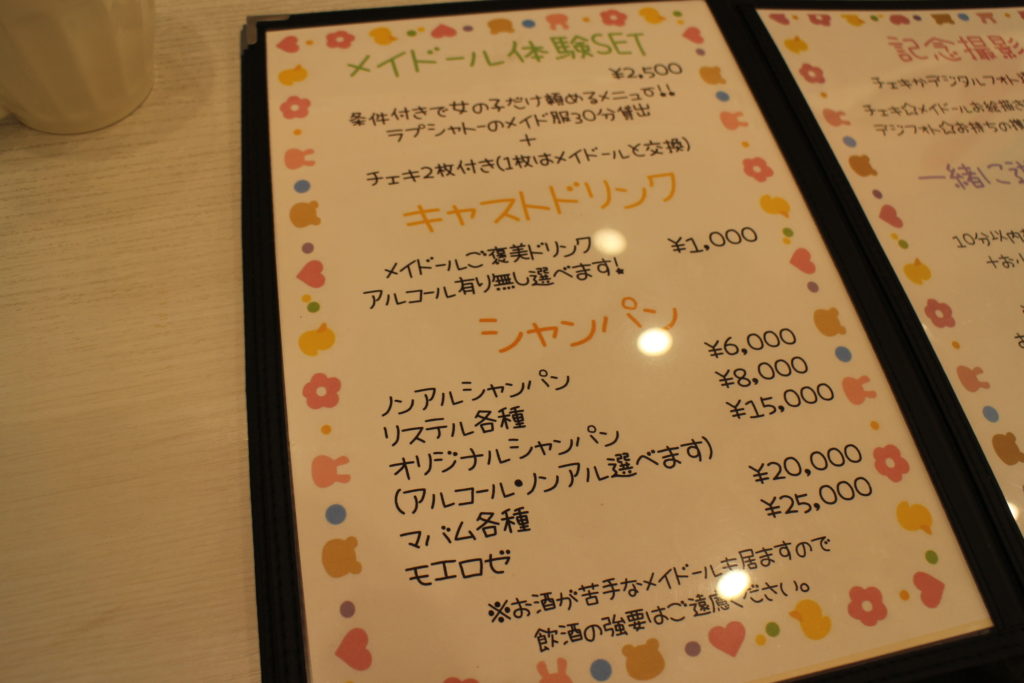 メイドール体験SET
¥2,500
条件付きで女の子だけ頼めるメニュー!!
ラプシャトーのメイド服30分貸出
+
チェキ2枚付き(1枚はメイドールと交換)
キャストドリンク
メイドールご褒美ドリンク ¥1,000
アルコール有り無し選べます!
シャンパン
ノンアルシャンパン ¥6,000
リステル各種 ¥8,000
オリジナルシャンパン ¥15,000
(アルコール・ノンアル選べます)
マバム各種 ¥20,000
モエロゼ ¥25,000
※お酒が苦手なメイドールも居ますので
飲酒の強要はご遠慮ください。
記念撮影
チェキかデジタルフォト
チェキ☆メイドールお絵描き
デジフォト☆お持ちの
一緒に
10分以内
+お